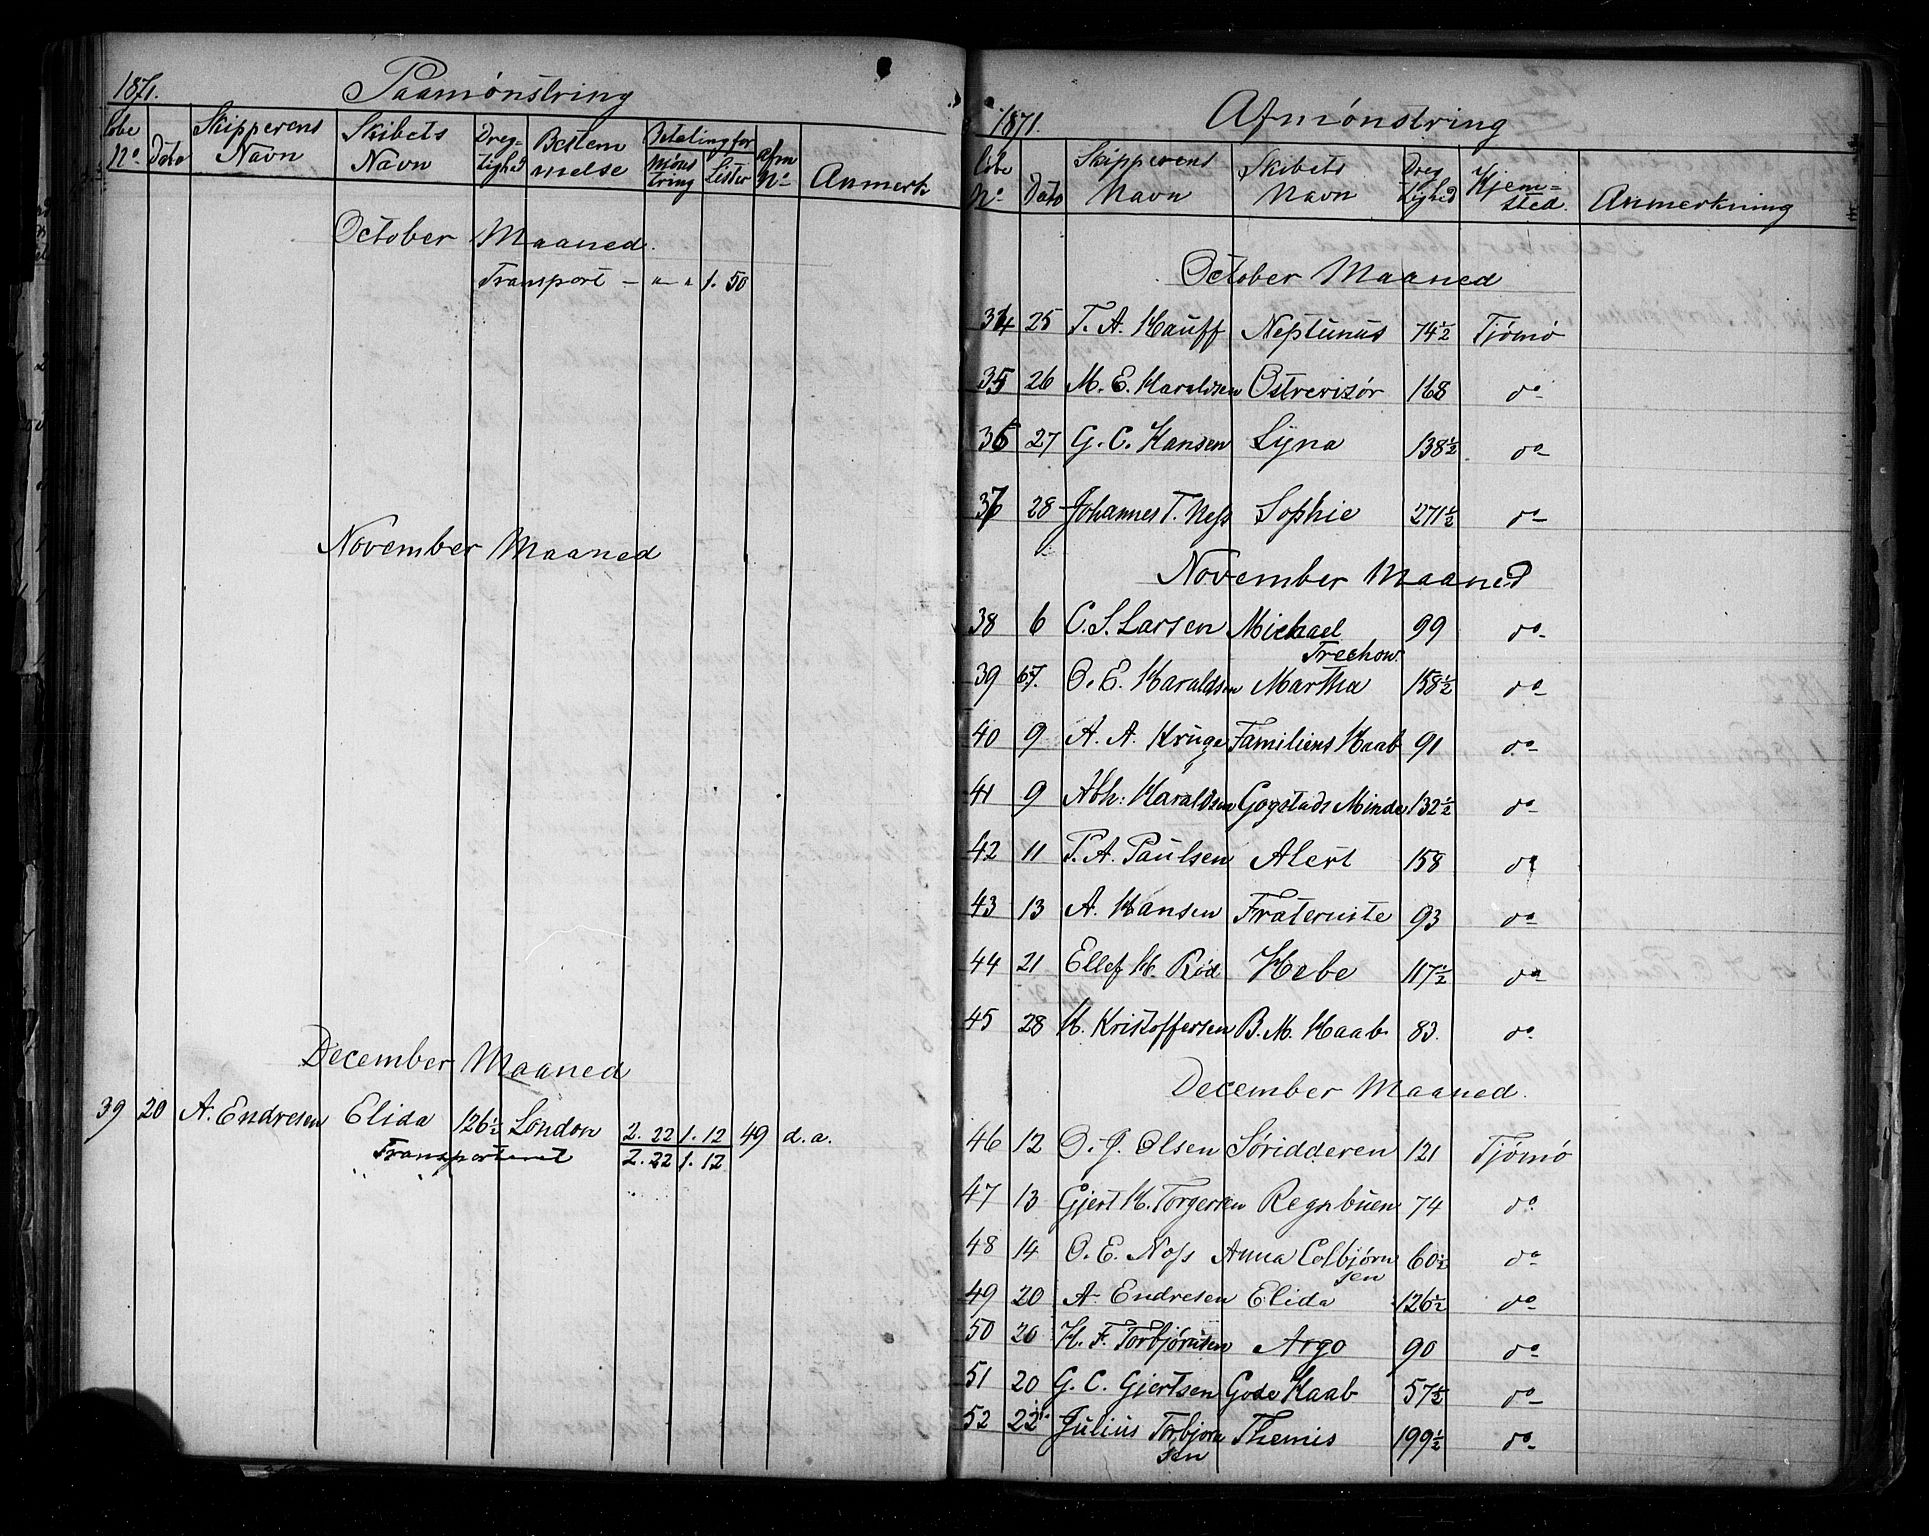 1871. Paamønstring
Løbe No Dato Skipperens Navn Skibets Navn Dreg-tighed Bestemmelse Betaling for Mønstring Lister Afm No Anmerk
October Maaned.
Transport - " " 1. 50
November Maaned
December Maaned
39 20 A. Endresen Elida 126½ London 2. 22 1. 12 49 d. a.
Transporteret 2. 22 1. 12
1871. Afmønstring
Løbe No Dato Skipperens Navn Skibets Navn Dreg-tighed Hjem=sted. Anmerkning
October Maaned
34 25 T. A. Hauff Neptunus 74½ Tjømø
35 26 M. E. Haraldsen Østrerisør 168 do
36 27 G. C. Hansen Lyna 138½ do
37 28 Johannes T. Ness Sophie 271½ do
November Maaned
38 6 C. S. Larsen Michael Trechow. 99 do
39 7. O. E. Haraldsen Martha 158½ do
40 9 A. A. Kruge Familiens Haab 91 do
41 9 Abh: Haraldsen Gogstads Minde 132½ do
42 11 P. A. Paulsen Alert 158 do
43 13 A. Hansen Fraternite 93 do
44 21 Ellef H. Rød Hebe 117½ do
45 28 H. Kristoffersen B. M. Haab 83. do
December Maaned.
46 12 O. J. Olsen Søridderen 121 Tjømø
47 13 Gjert H. Torgersen Regnbuen 74 do
48 14 O. E. Næss Anna Colbjørnsen 60½ do
49 20 A. Endresen Elida 126½ do
50 20 H. F. Torbjørnsen Argo 90 do
51 20 G. C. Gjertsen Gode Haab 57½ do
52 22 Julius Torbjornsen Themis 199½ do